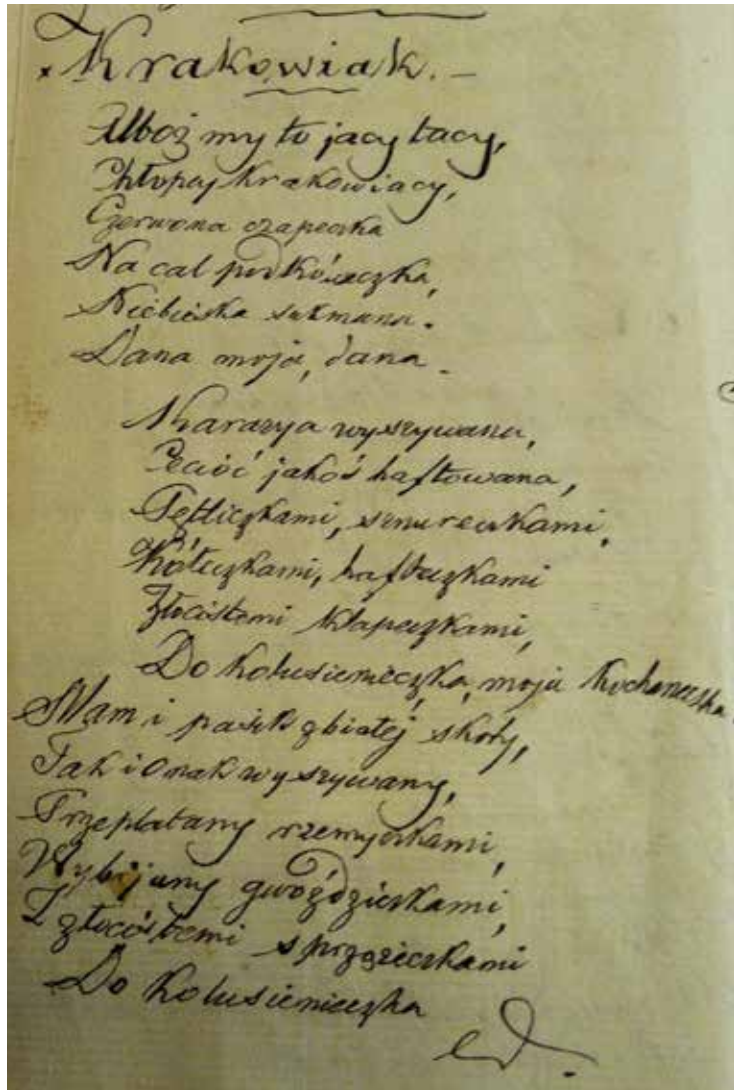 Krakowiak. –
Alboż my to jacy tacy,
Chłopcy Krakowiacy,
Czerwona czapeczka
Na cal podkóweczka,
Niebieska sukmana.
Dana moja, dana.
Karazyja wyszywana,
jakoś haftowana,
Pętliczkami, sznureczkami,
Kółeczkami, hafteczkami
Złocistemi klapeczkami,
Do kolusieńieczka, moja kochaneczka.
Mam i pasik z białej skóry,
Tak i onak wyszywany,
Przeplatany rzemyczkami,
Wybijany gwoździczkami,
Z złocistemi sprzążeczkami
Do kolusienieczka